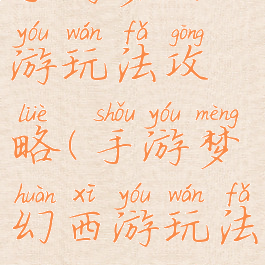 yóu wán fǎ gōng
游玩法攻
lüè shǒu yóu mèng
略(手游梦
huàn xī yóu wán fǎ
幻西游玩法